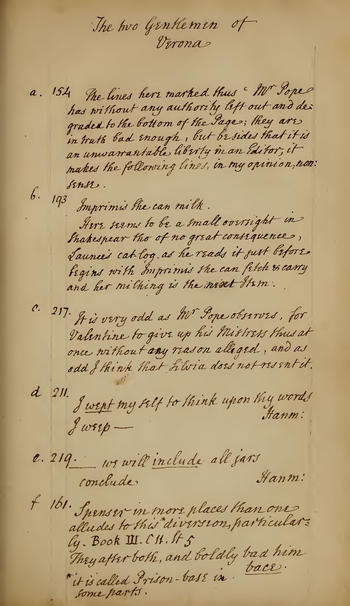 The two Gentlemen of
Verona
a. 154 The lines here marked thus ‘ Mr Pope
has without any authority left out and de:
graded to the bottom of the Page; they are
in truth bad enough, but besides that it is
an unwarrantable liberty in an Editor, it
makes the following lines, in my opinion, non:
sense.
b. 193 Imprimis she can milk.
Here seems to be a small oversight in
Shakespear tho of no great consequence,
Launce's cat-log, as he reads it just before
begins with Imprimis she can fetch & carry
and her milking is the next Item.
c. 217. It is very odd as Mr Pope observes, for
Valentine to give up his Mistress thus at
once without any reason alleged, and as
odd I think that Silvia does not resent it.
d 211. I wept my self to think upon thy words
I weep — Hanm:
e. 219. — we will include all jars
conclude Hanm:
f 161. Spenser in more places than one
alludes to this * diversion, particular:
ly. Book III. C.11. St 5
They after both, and boldly bad him
bace.
* it is called Prison-base in
some parts.